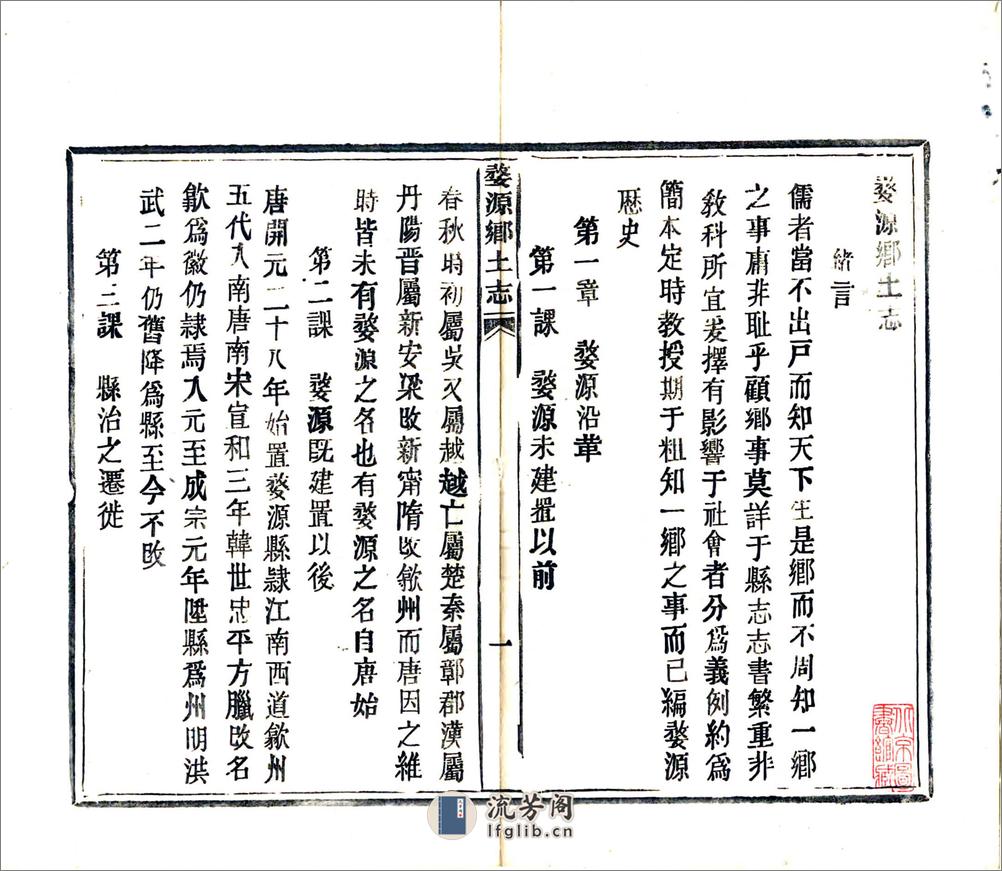 婺源鄉土志
緒言
儒者當不出戸而知天下生是鄉而不周知一鄉
之事庸非耻乎顧鄉事莫詳于縣志志書繁重非
敎科所宜爰擇有影響于社會者分爲義例約爲
簡本定時教授期于粗知一鄉之事而已編婺源
歷史
第一章 婺源沿革
第一課 婺源未建置以前
婺源鄉土志 一
春秋時初屬吳又屬越越亡屬楚秦屬鄣郡漢屬
丹陽晋屬新安梁改新甯隋改歙州而唐因之維
時皆未有婺源之名也有婺源之名自唐始
第二課 婺源既建置以後
唐開元二十八年始置婺源縣隷江南西道歙州
五代入南唐南宋宣和三年韓世忠平方臘改名
歙爲徽仍隷焉入元至成宗元年陞縣爲州明洪
武二年仍舊降爲縣至今不改
第三課 縣治之遷徙
北京圖
書館藏
流芳阁
lfglib.cn